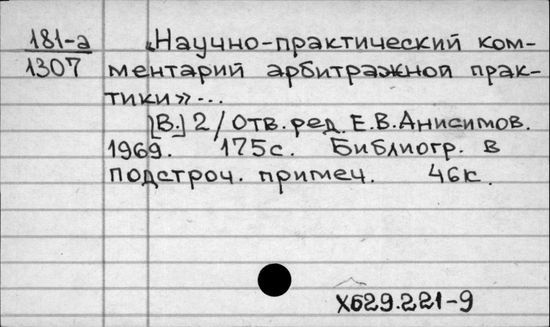 181-а
1307
„Научно-практический ком-
ментарий арбитражной прак-
тики»...
[В.] 2/Отв.ред. Е.В.Анисимов.
1969. 175с. Библиогр. в
подстроч. примеч. 46к.
Х629.221-9